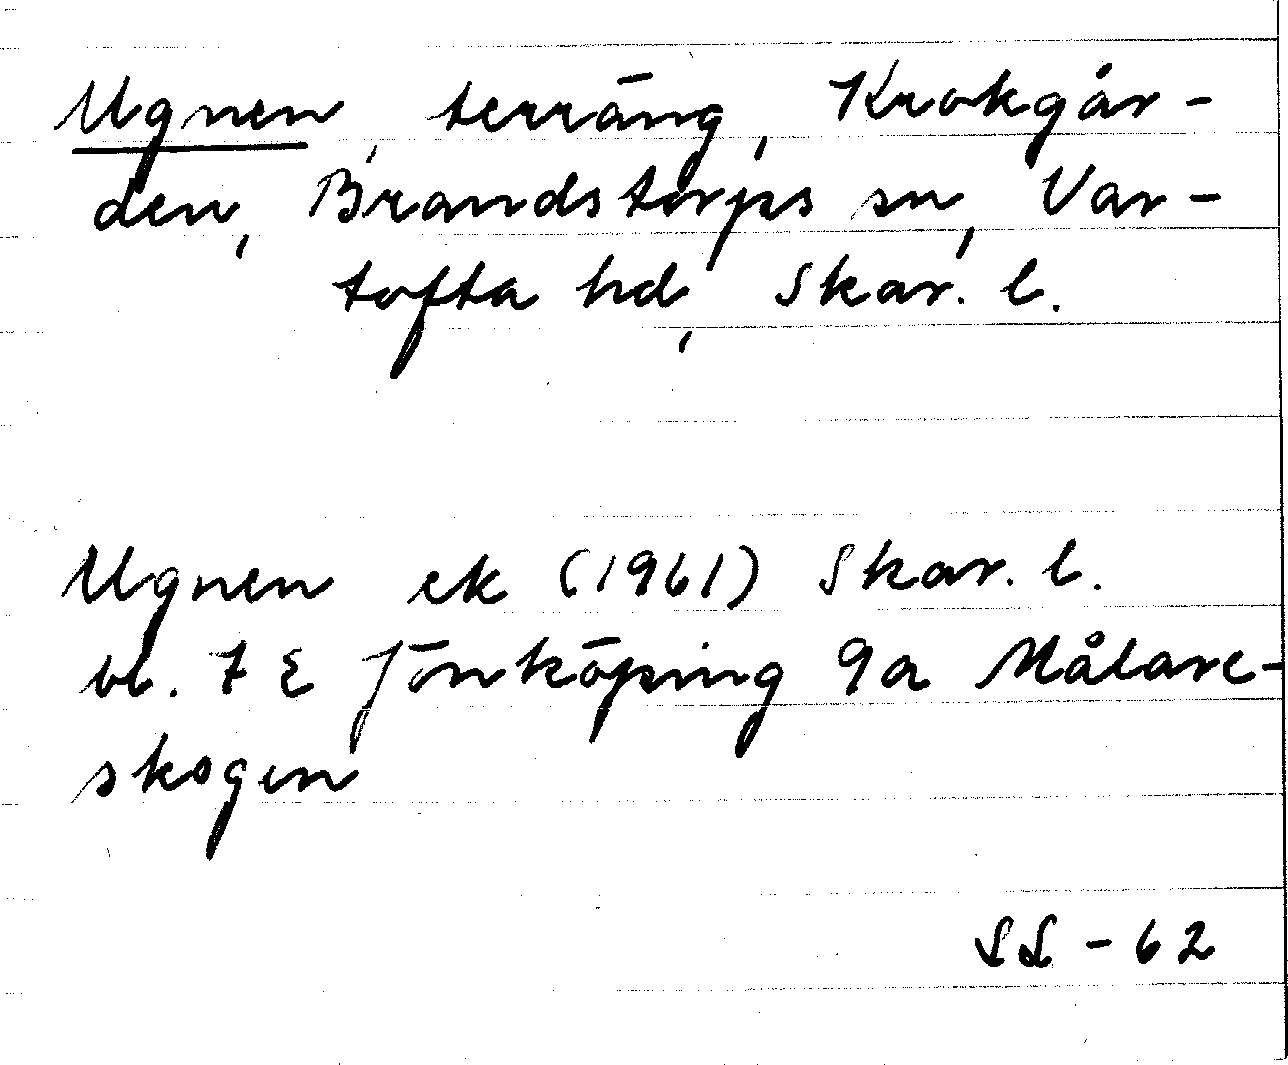 Ugnen, terräng, Krokgår-
den, Brandstorps sn, Var-
tofta hd, Skar. l.
Ugnen ek (1961) Skar. l.
bl. 7 E Jönköping 9a Målare-
skogen
SS - 62